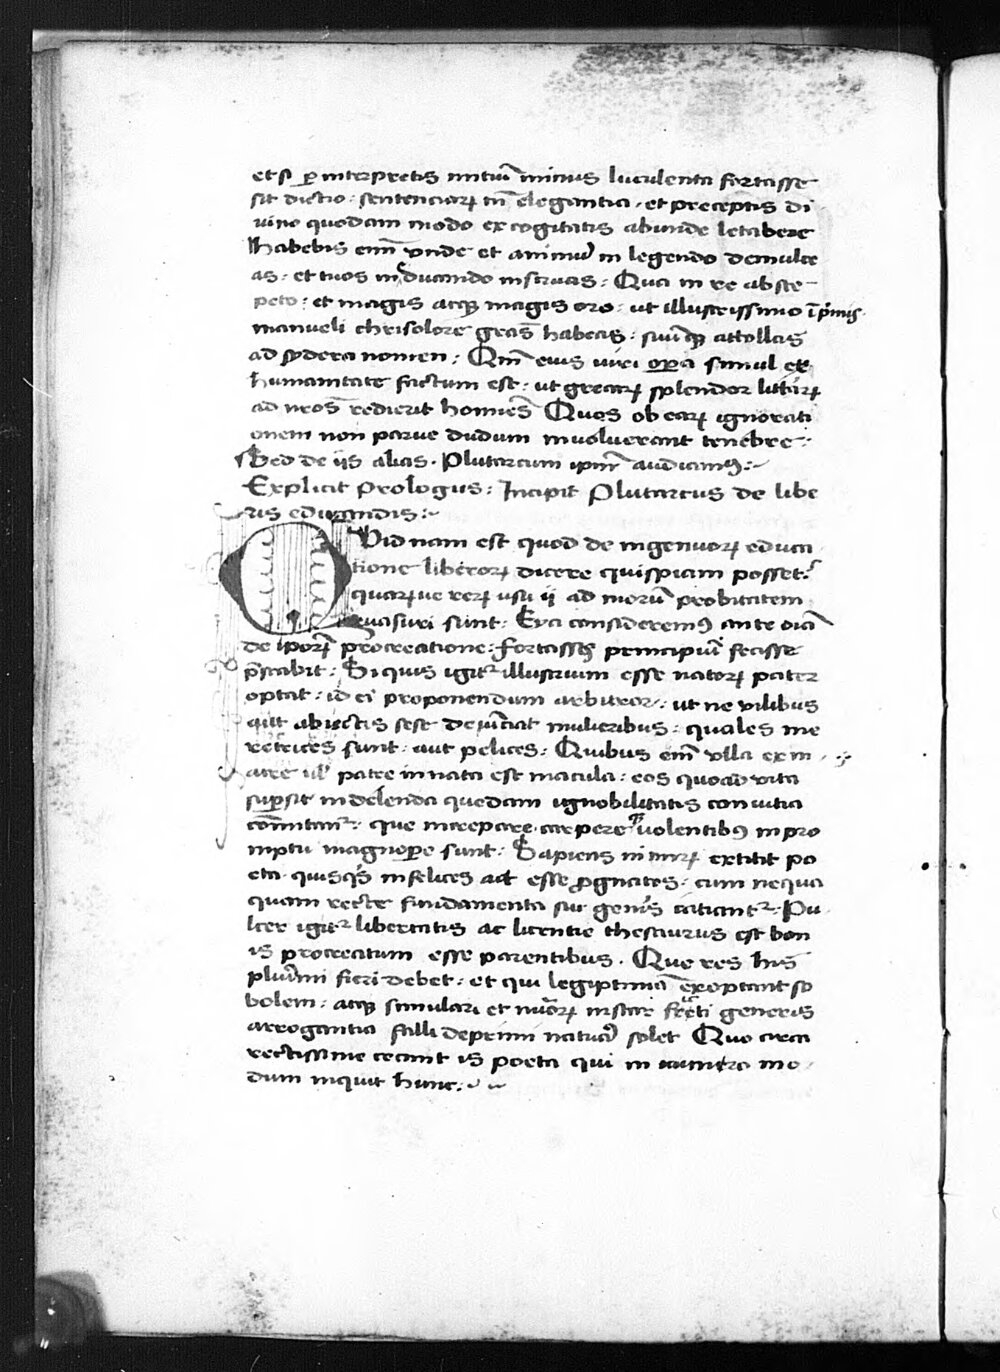 etsi ꝑ interpretis uitiū minus luculenta fortasse
sit dictio : sentenciaꝝ tn̄ elegantia · et preceptis di
uino quodam modo excogitatis abunde letabere
Habebis enī vnde et animū in legendo demulce
as · et tuos in educando instruas : Qua in re abs te
peto : et magis atqꝫ magis oro : ut illustrissimo īp̄mis
manueli chrisolore gr̄as habeas : suūqꝫ attollas
ad sydera nomen : Qm̄ eius uiri oꝑa simul et
humanitate factum est : ut grecaꝝ splendor litt̄aꝝ
ad nr̄os redierit homīes Quos ob eaꝝ ignorati
onem non parue dudum inuoluerant tenebre :
Sed de iis alias · Plutarcum ipm̄ audiamꝰ :~
Explicit prologus : Incipit Plutarcus de libe
ris educandis :~
Quid nam est quod de ingenuoꝝ educa
tione liberoꝝ dicere quispiam posset ?
quarꝫue reꝝ usu ii ad moꝝ probitatem
euasuri sunt : Eya consideremꝰ ante oīa
de ipoꝝ procreatione : fortassis principiū fecisse
p̄stabit : Si quis igit᷑ illustrium esse natoꝝ pater
optat : id ei proponendum arbitror : ut ne uilibus
aut abiectis sese deuīciat mulieribus : quales me
retrices sunt : aut pelices : Quibus enī vlla ex m
atre ul̓ patre innata est macula : eos quoad vita
suꝑsit indelenda quedam ignobilitatis conuitia
comitant᷑ : que increpare carpere volentibꝰ in pro
mptu magnoꝑe sunt : Sapiens nimiꝝ extitit po
eta quisqꝫ infelices ait esse ꝓgnatos : cum nequa
quam recte fundamenta sui genīs iaciant᷑ : Pu
lcer igit᷑ libertatis ac licentie thesaurus est bon
is procreatum esse parentibus · Que res hiis
plurīmi fieri debet : et qui legiptimā exoptant so
bolem : atqꝫ simulari et nuōꝝ instar freti generis
arrogantia falli deprimi natura solet Quo circa
rectissime cecinit is poeta qui in numero mo
dum inquit hunc :~ ~